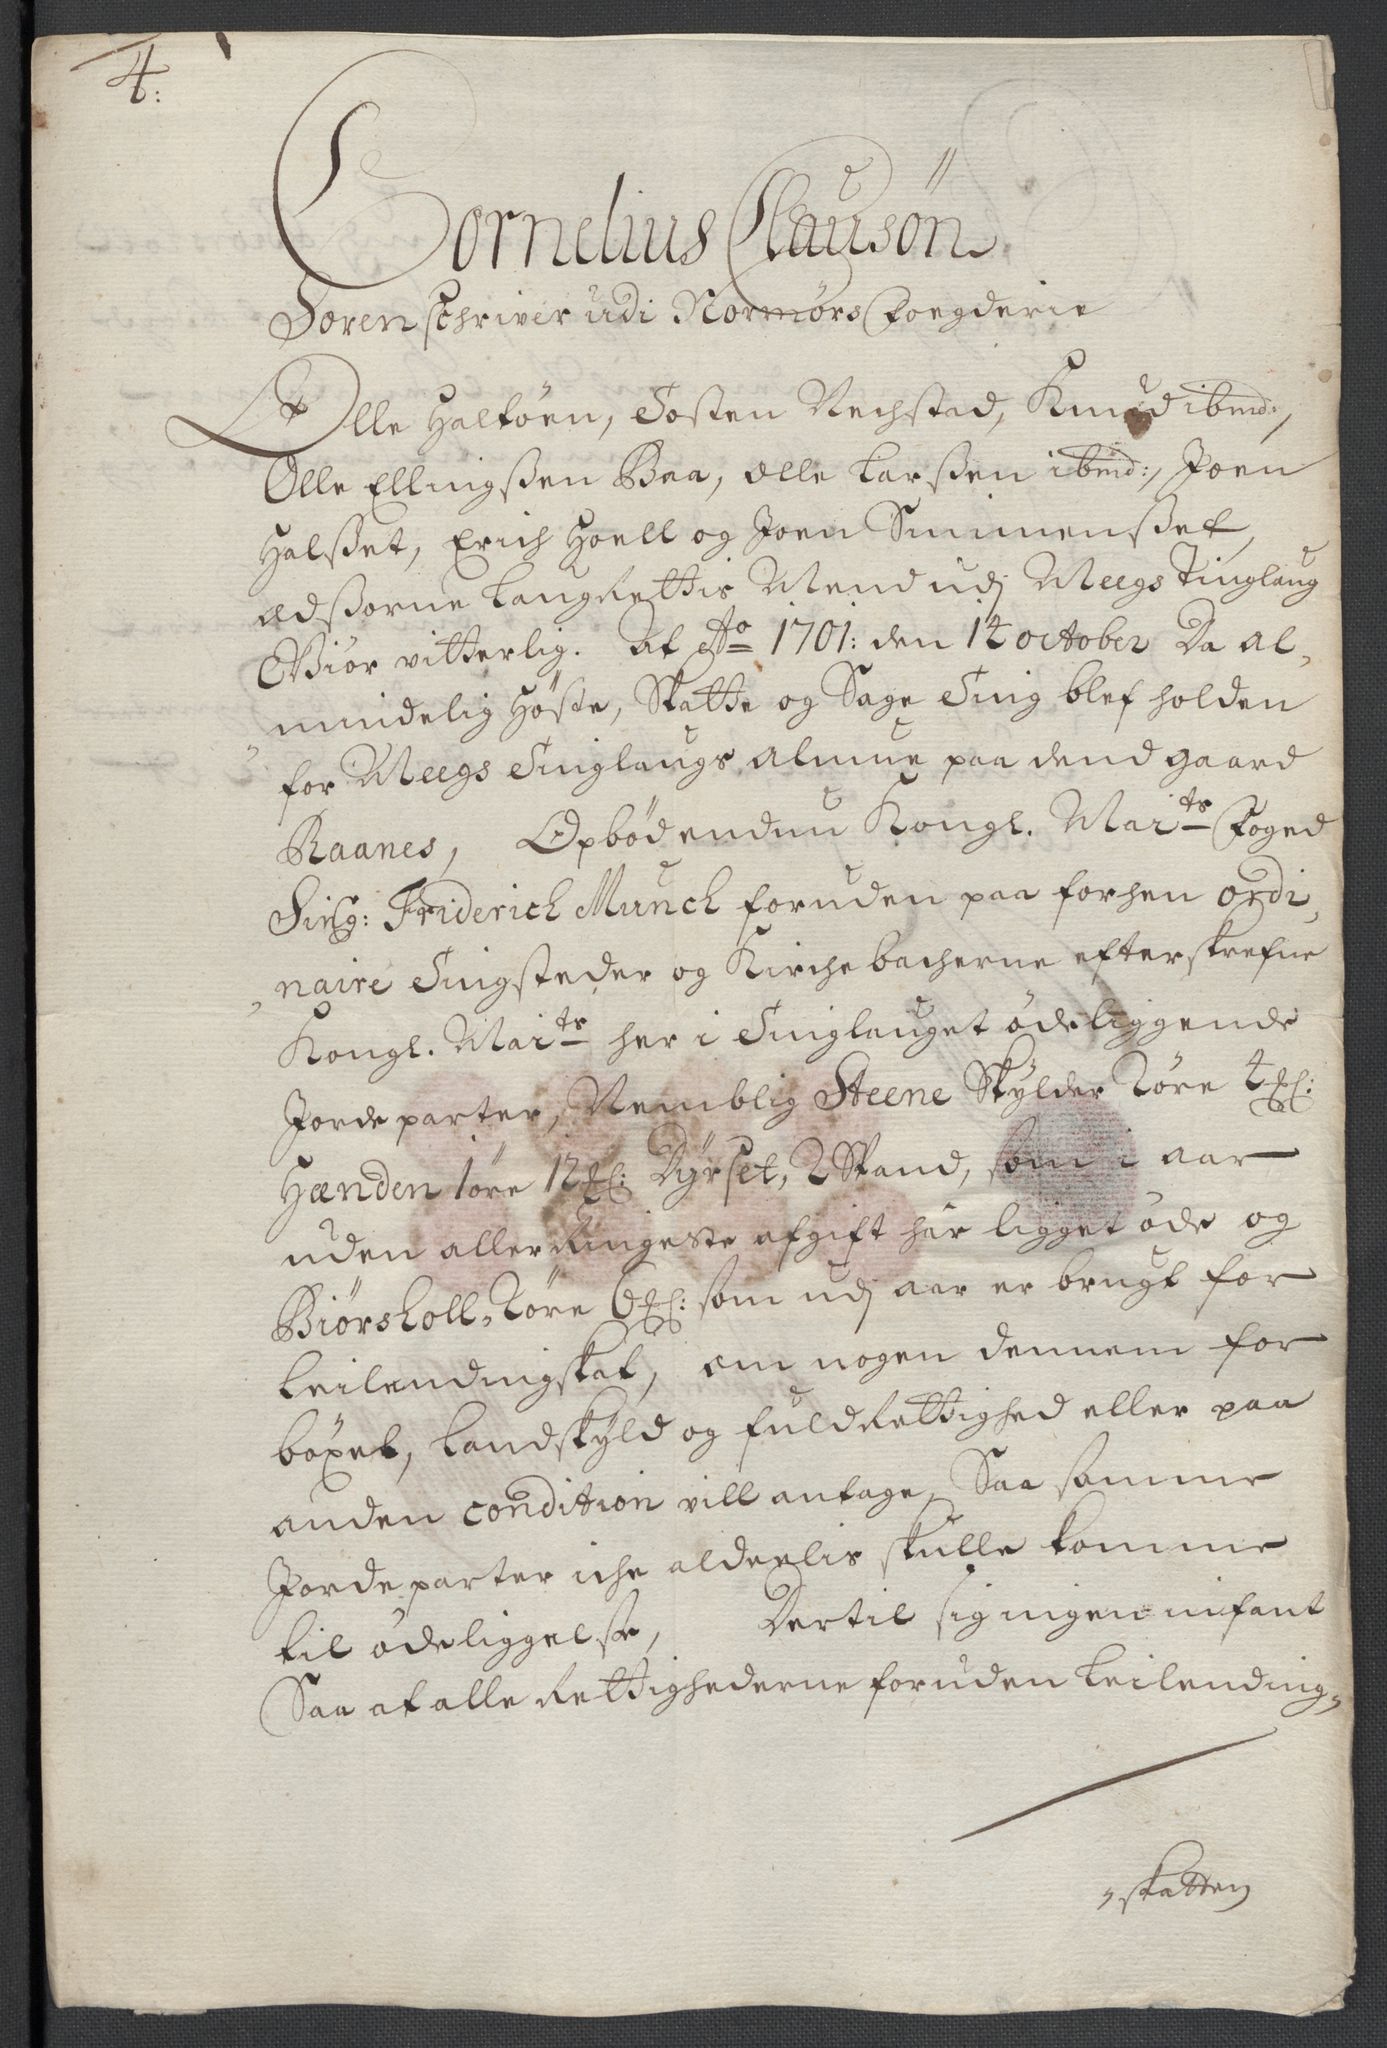 4:
Cornelius Clausøn
Sorenschriver udi Normørs Fogderie
Olle Halføen, Tosten Rechstad, Knud ibmd:,
Olle Ellingßen Baa, Olle Larßen ibmd:, Joen
Halßet, Erich Hoell og Joen Simmenßet,
Edßorne Laugrettis Mend udj Meegs Tinglaug
Giør vitterlig. At Ao 1701: den 14 october Da al,
mindelig Høste, Skatte og Sage Ting blef holden
for Meegs Tinglaugs almue paa dend gaard
Raanes, Opbød endnu Kongl. Maits Foged
Sigr: Friderich Munch foruden paa forhen ordi,
naire Tingsteder og Kirchebacherne efterskrefne
Kongl. Maits her i Tinglauget ødeliggende
Jordeparter, Nemblig Steene Skylder 2 øre 4 :
Hænden 1 øre 12 : Dyrset, 2 Spand, som i aar
uden allerringeste afgift har ligget øde og
Biørsholl, 2 øre 6 : som udj aar er brugt for
Leilendingskat, om nogen dennem for
bøxel, Landskyld og fuld Rettighed eller paa
anden condition vill antage, Saa samme
Jordeparter iche alderlis skulle komme
til ødeliggelse, Dertil sig ingen infant
Saa at alle Rettighederne foruden Leilending,
,skatten